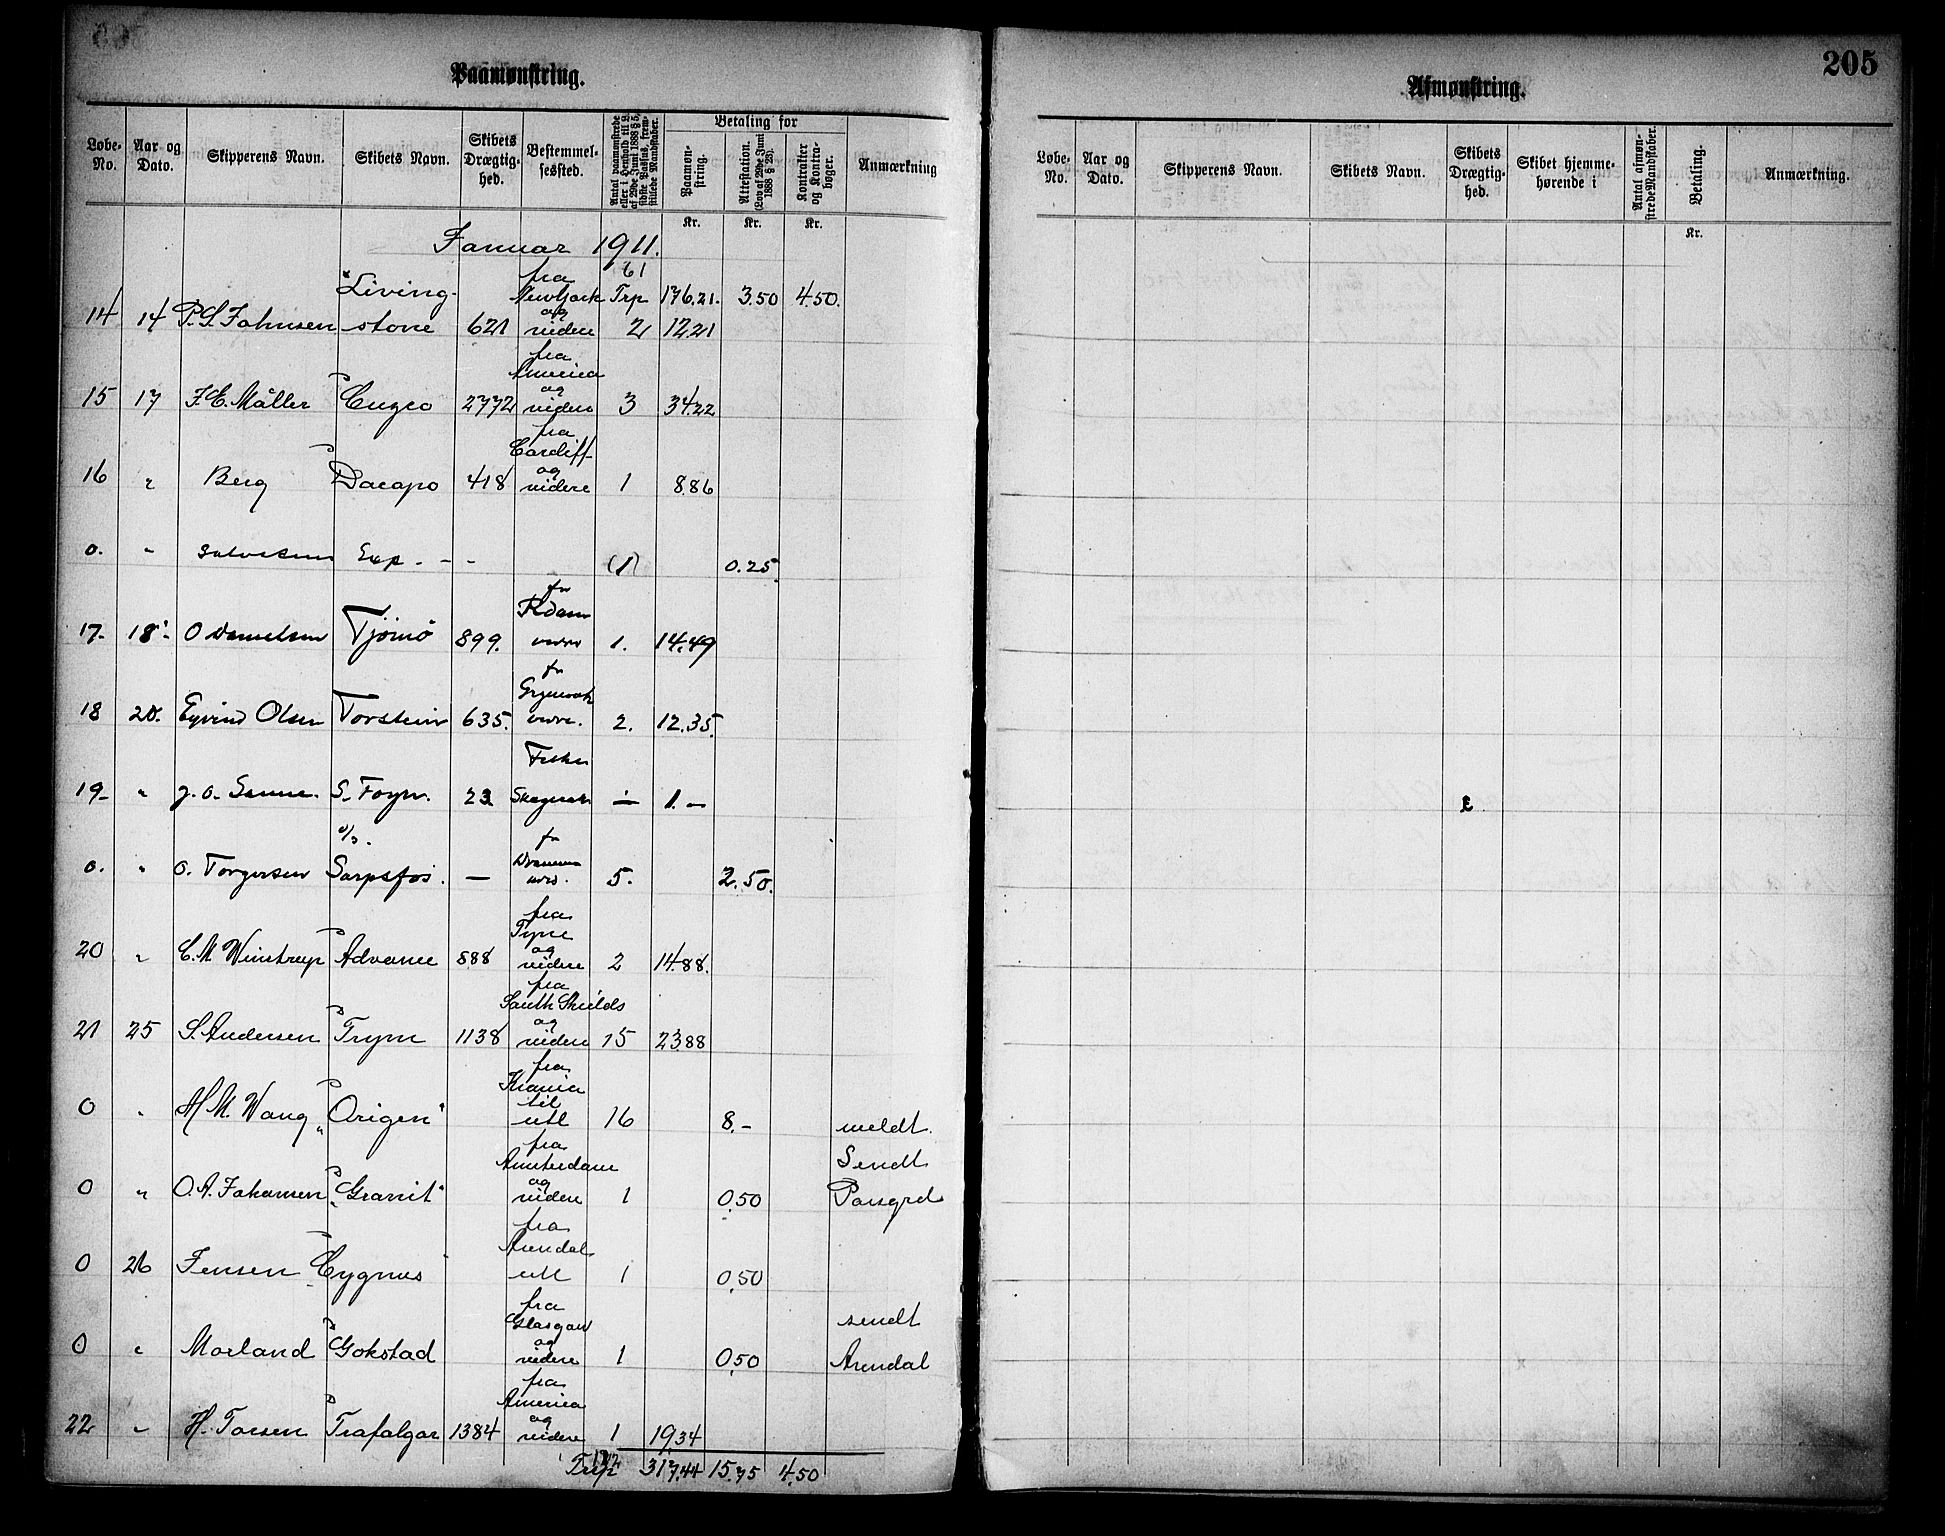 Paamønstring.
Løbe-No. Aar og Dato. Skipperens Navn. Skibets Navn. Skibets Drægtighed. Bestemmelsessted. Antal paamønstrede eller i Henhold til L. af 29de Juni 1888 § 5, sidste Passus, fremstillede Mandskaber. Betaling for Paamønstring. Attestation. (Lov af 29de Juni 1888 § 25). Kontrakter og Kontrabøger. Anmærkning
Kr. Kr. Kr.
Januar 1911.
fra 61
"Living- New York Trp 176.21. 3.50 4.50.
og
14 14 P. S. Johnsen stone 621 videre 2 12.21
fra
America
og
15 17 J. E. Møller Cuzco 2772 videre 3 34.22
fra
Cardiff
og
16 " Berg Dacapo 418 videre 1 8.86
0. " Salvesen Exp. - - (1) 0.25
fra
Rdam
17. 18. O Danielsen Tjømø 899. videre 1. 14.49
fr
18 20. Eyvind Olsen Torstein 635. videre. 2. 12.35.
19 " S. Foyn. 23 Skagerak 1. -
d/s. fr
Drammen
0. " O. Torgersen Sarpsfos. — 5. 2.50.
fra
Tyne
og
20 " C. M Winstrup Advance 888 videre 2 14.88.
fra
South Shields
og
21 25 S. Andersen Trym 1138 videre 15 23.88
fra
Krania
til
0 " H. M. Wang "Origen" utl 16 8.- meldt.
fra
Amsterdam Sendt
og
0 " O. A. Johansen "Granit" videre 1 0.50 Porsgrd
fra
Arendal
0 26 Jensen "Cygnus" utl 1 0.50
fra
Glasgow sendt
og
0 " Morland Gokstad videre 1 0.50 Arendal
fra
America
og
22 " H. Torsen Trafalgar 1384 videre 1 19.34
Trp 317.44 15.75 4.50
205
Afmønstring.
Løbe-No. Aar og Dato. Skipperens Navn. Skibets Navn. Skibets Drægtighed. Skibet hjemmehørende i Antal afmønstrede Mandskaber. Betaling. Anmærkning.
Kr.